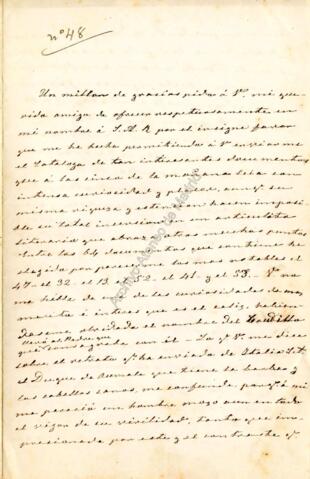 nº 48
Un millon de gracias pido á V. mi que-
rida amiga de ofrecer respetuosamente en
mi nombre á S.A.R. por el insigne favor
que me ha hecho permitiendo á V. enviarme
el Catalogo de tan interesantes documentos
que á las cinco de la mañana leia con
intensa curiosidad y placer, aunq. su
misma riqueza y estension hacen imposi-
ble su total insercion en un articulito
literario que abraza otros muchos puntos
Entre los 64 documentos que contiene he
elegido por parecerme los mas notables el
47 - el 32 - el 13 - el 52 - el 41 - y el 53. - V. no
me hable de las curiosidades de
é inteses que es el codig. habien-
doseme olvidado el nombre del Caudillo
que llevó al Redentor
consagrada con él - Lo q. V. me dice
sobre el retrato q. ha enviado de Italia S.A.
el Duque de Aumale que tiene la barba y
los cabellos canos, me confunde porq. á mi
me pareció un hombre mozo aun en todo
el vigor de su virilidad, tanto que im-
presionada por este y el contraste q.
Archivo Ateneo de Madrid